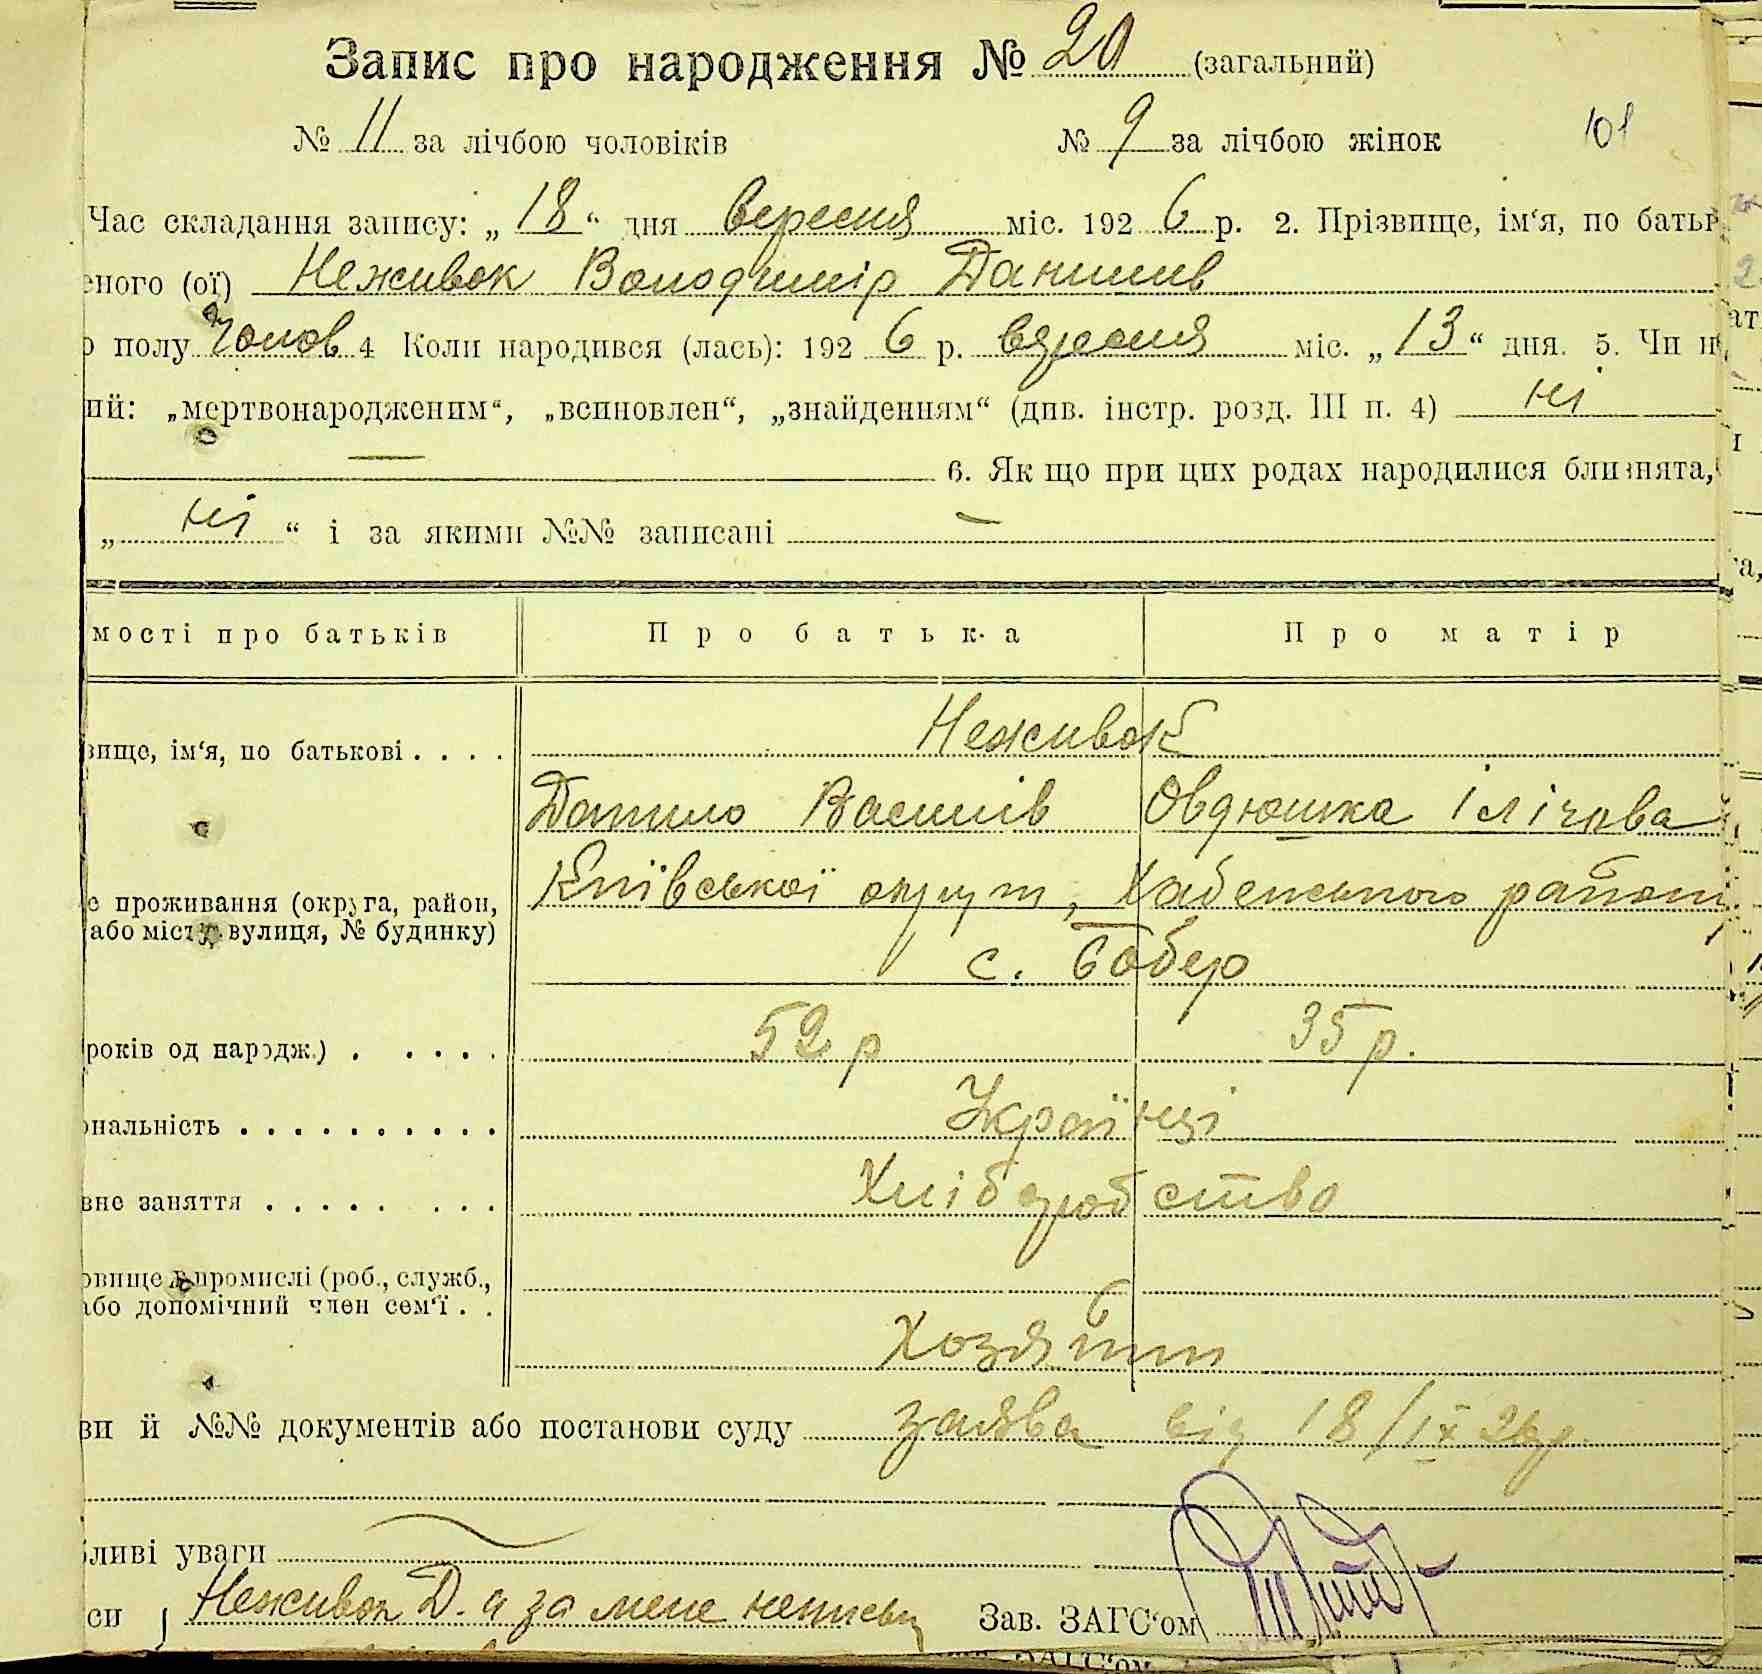 Запис про народження № 20 (загальний)
№ 11 за лічбою чоловіків № 9 за лічбою жінок 101
Час складання запису: „ 18 “ дня вересня міс. 192 6 р. 2. Прізвище, ім‘я, по батьк
еного (ої) Неживок Володимір Данилив
о полу чолов 4 Коли народився (лась): 192 6 р. вересня міс. „ 13 “ дня. 5. Чи н
ий: „мертвонародженим“, „всиновлен“, „знайденням“ (див. інстр. розд. III п. 4) ні
— 6. Як що при цих родах народилися близнята,
„ ні “ і за якими №№ записані —
мості про батьків Про батька Про матір
вище, ім‘я, по батькові . . . . Неживок
Данило Василів Овдюшка Ілічова
е проживання (округа, район, Київської округи, Хабенського району
або місто вулиця, № будинку)
с. Бобер
років од народж.) . . . . . 52 р 35 р.
ональність . . . . . . . . . . Українці
вне заняття . . . . . . . . Хлібо­робство
овище в промислі (роб., служб.,
або допомічний член сем‘ї . .
Хозяїни
ви й №№ документів або постанови суду заява від 18/IX 26р.
ливі уваги
си Неживок Д. а за мене Зав. ЗАГС‘ом